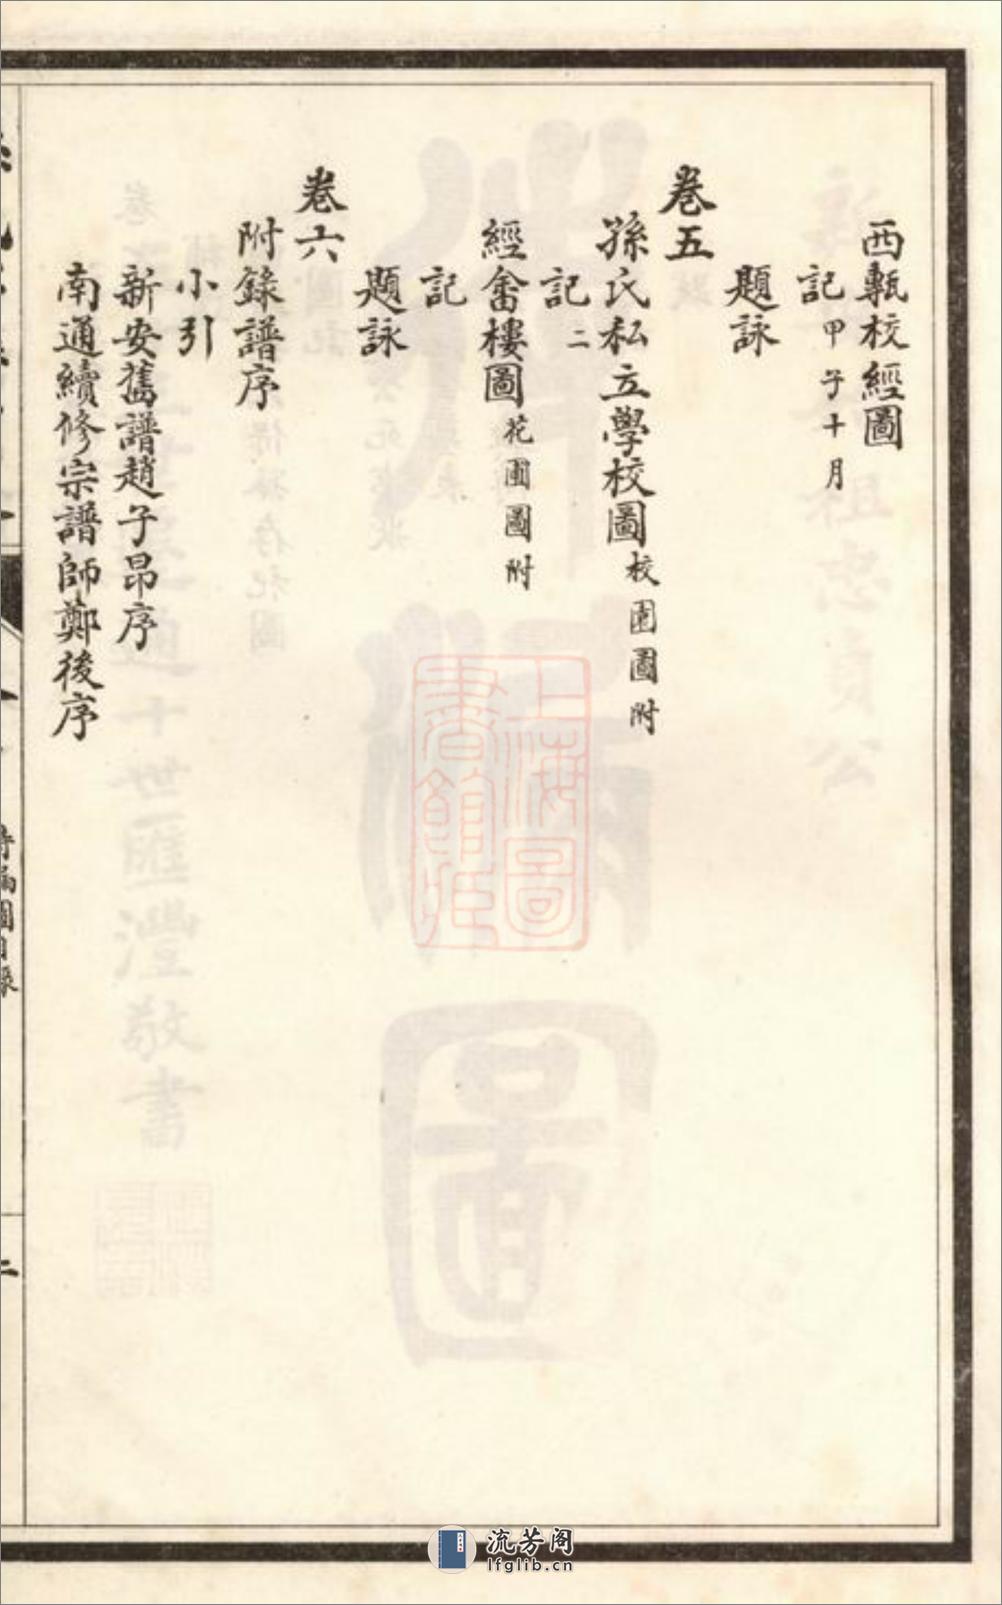 西甎校經圖
記甲子十月
題詠
卷五
孫氏私立學校圖校園圖附
記二
經畬樓圖花圃圖附
記
題詠
卷六
附錄譜序
小引
新安舊譜趙子昂序
南通續修宗譜師鄭後序
圖目錄
二
上海圖
書館藏
流芳阁
lfglib.cn